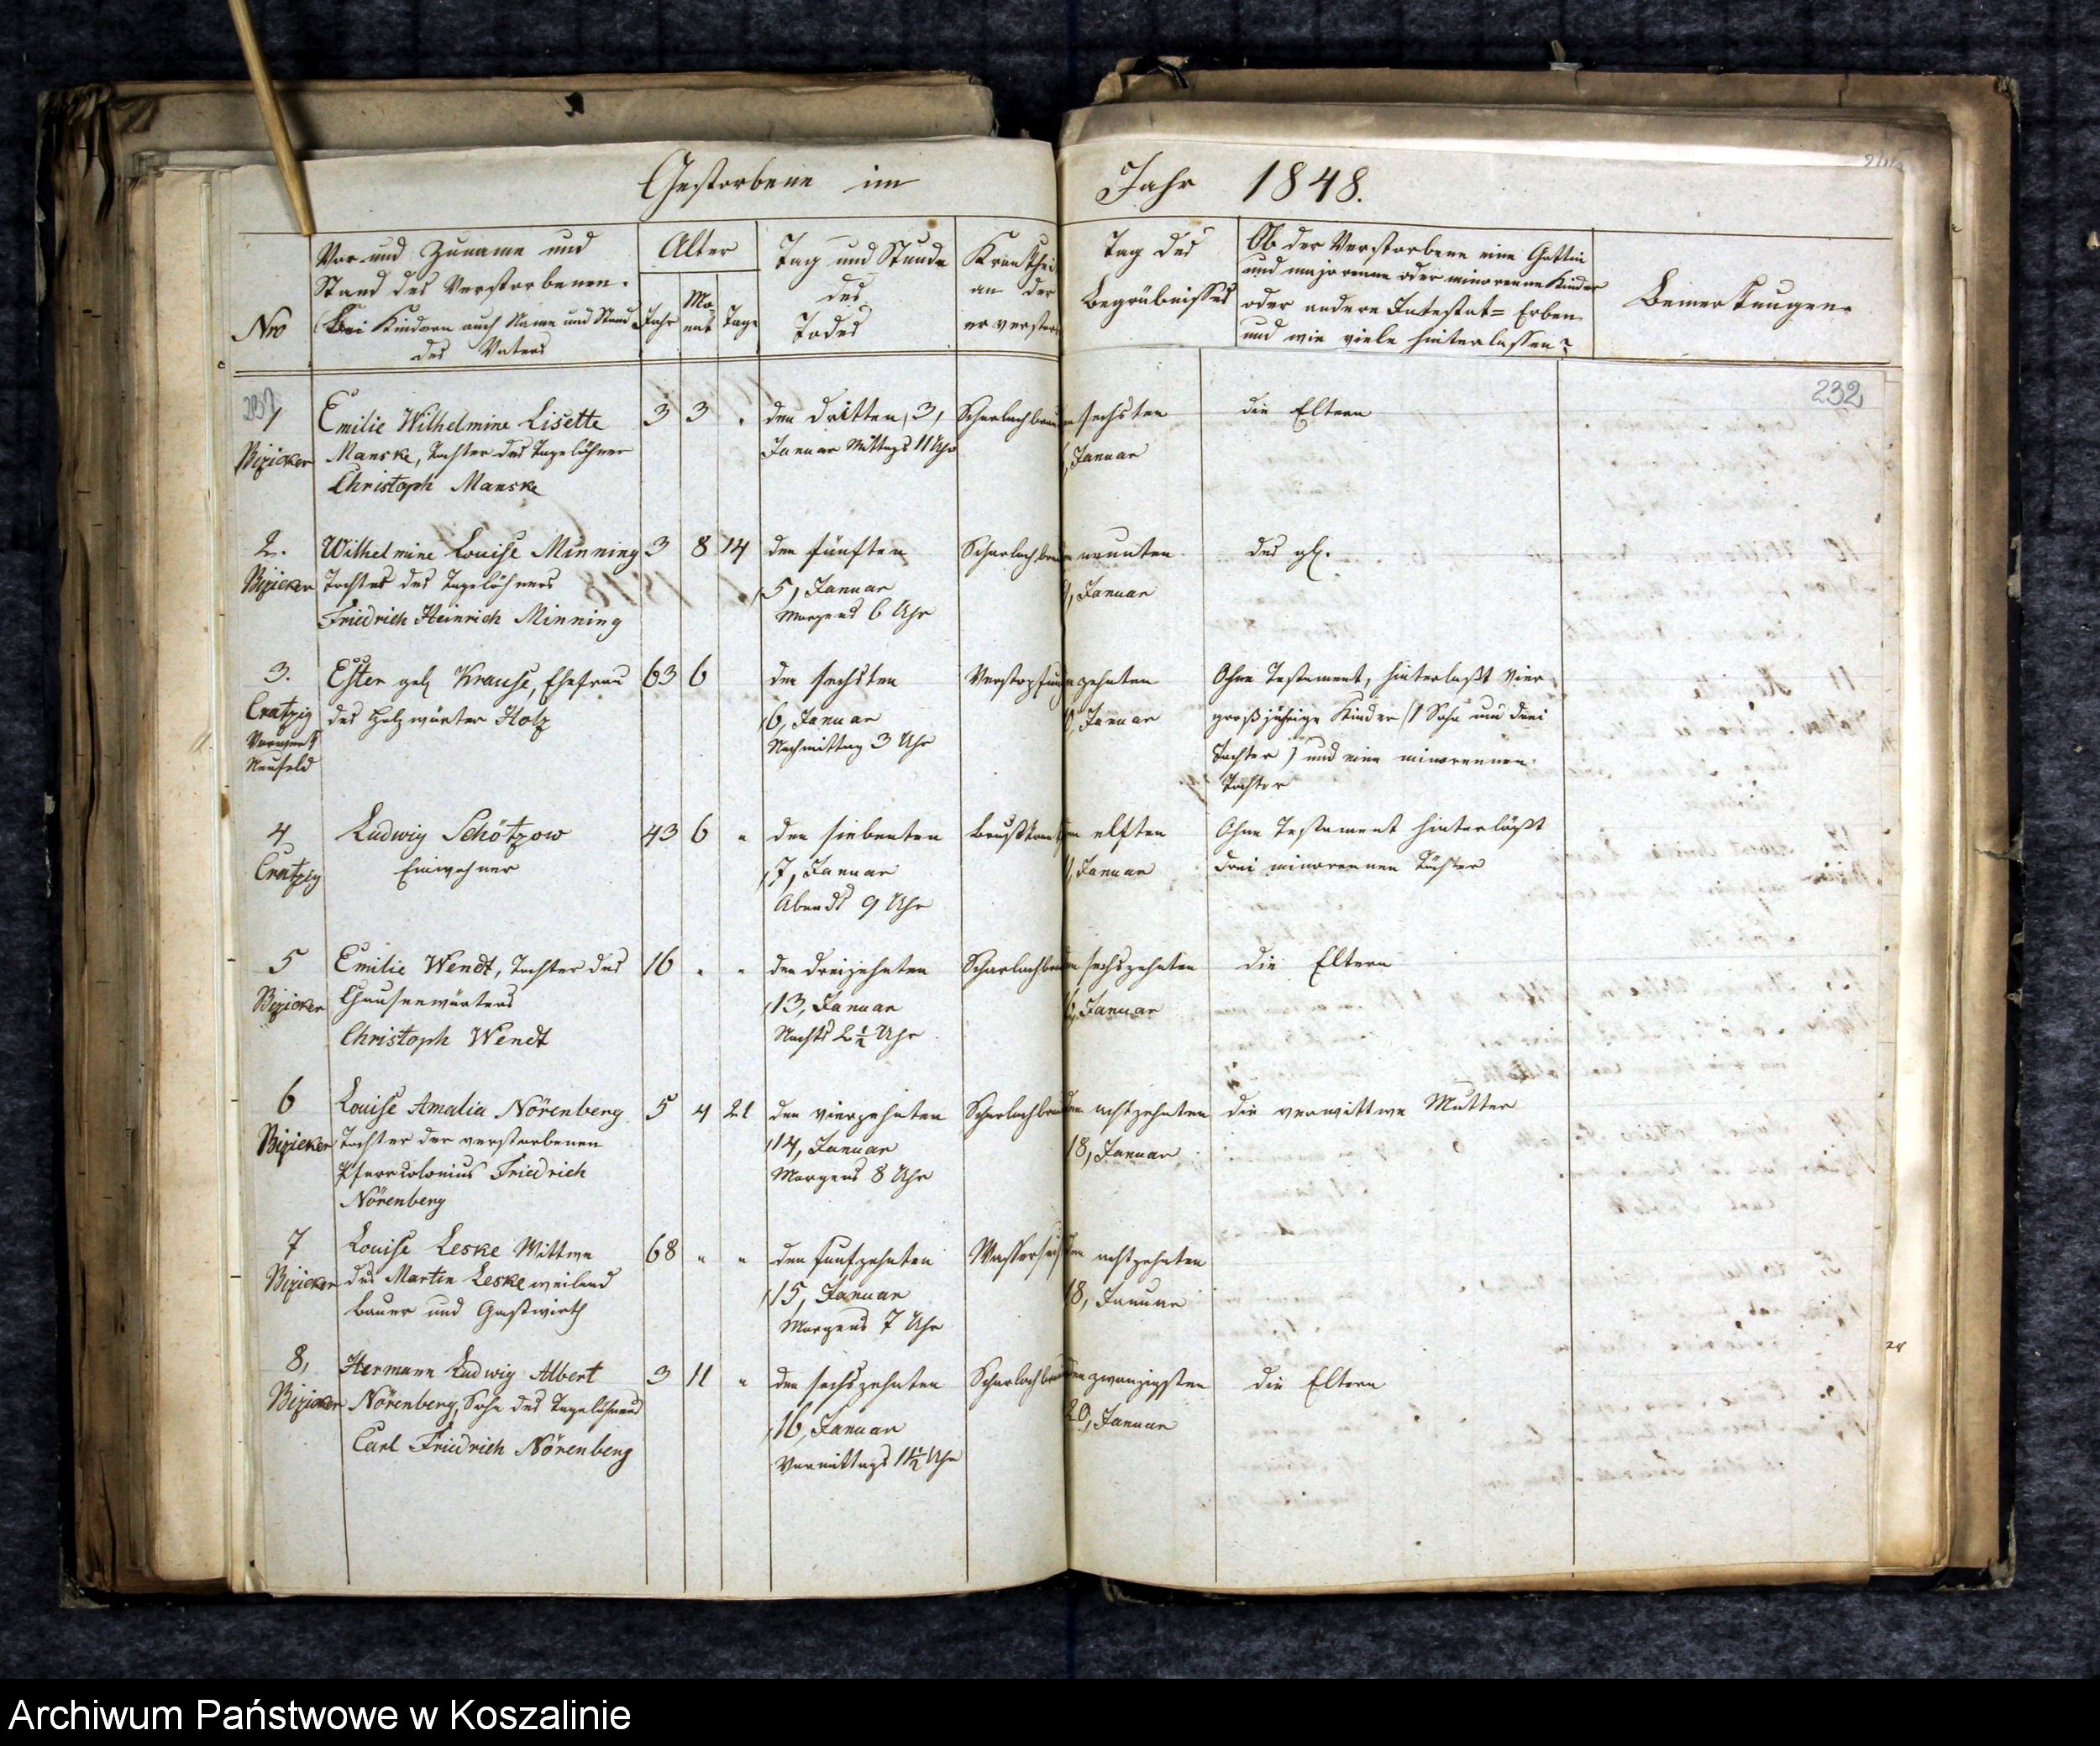 Gestorbene im Jahr 1848.
Nro
Vor und Zuname und
Stand des Verstorbenen.
(Bei Kindern auch Name und Stand
des Vaters
Alter
Jahr
Mo-
nat
Tage
Tag und Stunde
des
Todes
Krankhei
an der
er verstor
Tag des
Begräbnisses
Ob der Verstorbene eine Gattin
und majorenne oder minorenne Kinder
oder andere Intestat= Erben
und wie viele hinterlassen?
Bemerkungen
232
1
Bizicker
Emilie Wilhelmine Lisette
Manske, Tochter des Tagelöhner
Christoph Manske
3 3 "
den dritten, 3,
Januar Mittags 11 Uhr
Scharlachbräu
sechsten
Januar
die Eltern
2.
Bizicker
Wilhelmine Louise Minning
Tochter des Tagelöhners
Friedrich Heinrich Minning
3 8 14
den fünften
5, Januar
Morgens 6 Uhr
Scharlachbrä
neunten
9, Januar
des gl.
3.
Cratzig
Vorwerk
Neufeld
Ester geb Krause, Ehefrau
des Holzwärter Holz
63 6
den sechsten
6, Januar
Nachmittag 3 Uhr
Verstopfung
zehnten
Januar
Ohne Testament, hinterlaßt vier
großjährige Kinder (1 Sohn und drei
Töchter) und eine minorennen
Tochter
4
Cratzig
Ludwig Schötzow
Einwohner
43 6 "
den siebenten
7, Januar
Abends 9 Uhr
Brustkrank
elften
Januar
Ohne Testament hinterläßt
drei minorennen Töchter
5
Bizicker
Emilie Wendt, Tochter des
Chauseewärters
Christoph Wendt
16 " "
den dreizehnten
13, Januar
Nachts 2½ Uhr
Scharlachbrä
sechszehnten
Januar
die Eltern
6
Bizicker
Louise Amalia Nörenberg
Tochter der verstorbenen
Pfarrcolonius Friedrich
Nörenberg
5 4 21
den vierzehnten
14, Januar
Morgens 8 Uhr
Scharlachbräu
den achtzehnten
18, Januar
die verwittwe Mutter
7
Bizicker
Louise Leske Wittwe
des Martin Leske weiland
Bauer und Gastwirth
68 " "
den funfzehnten
15, Januar
Morgens 7 Uhr
Wassersuch
den achtzehnten
18, Januar
8,
Bizicker
Hermann Ludwig Albert
Nörenberg, Sohn des Tagelöhners
Carl Friedrich Nörenberg
3 11 "
den sechszehnten
16, Januar
Vormittags 11½ Uhr
Scharlachbräu
den zwanzigsten
20, Januar
die Eltern
Archiwum Państwowe w Koszalinie